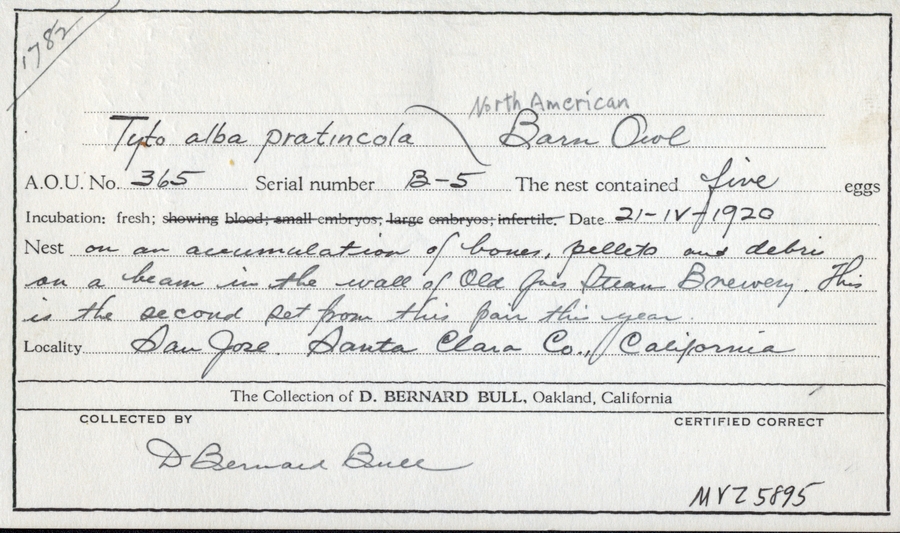 1782
North American
Tyto alba pratincola Barn Owl
A.O.U. No. 365 Serial number B-5 The nest contained five eggs
Incubation: fresh; showing blood; small embryos; large embryos; infertile. Date 21-IV-1920
Nest on an accumulation of bones, pellets and debris
on a beam in the wall of Old Steam Brewery. This
is the second set from this pair this year.
Locality San Jose. Santa Clara Co., California
The Collection of D. BERNARD BULL, Oakland, California
COLLECTED BY CERTIFIED CORRECT
D Bernard Bull
MVZ 5895